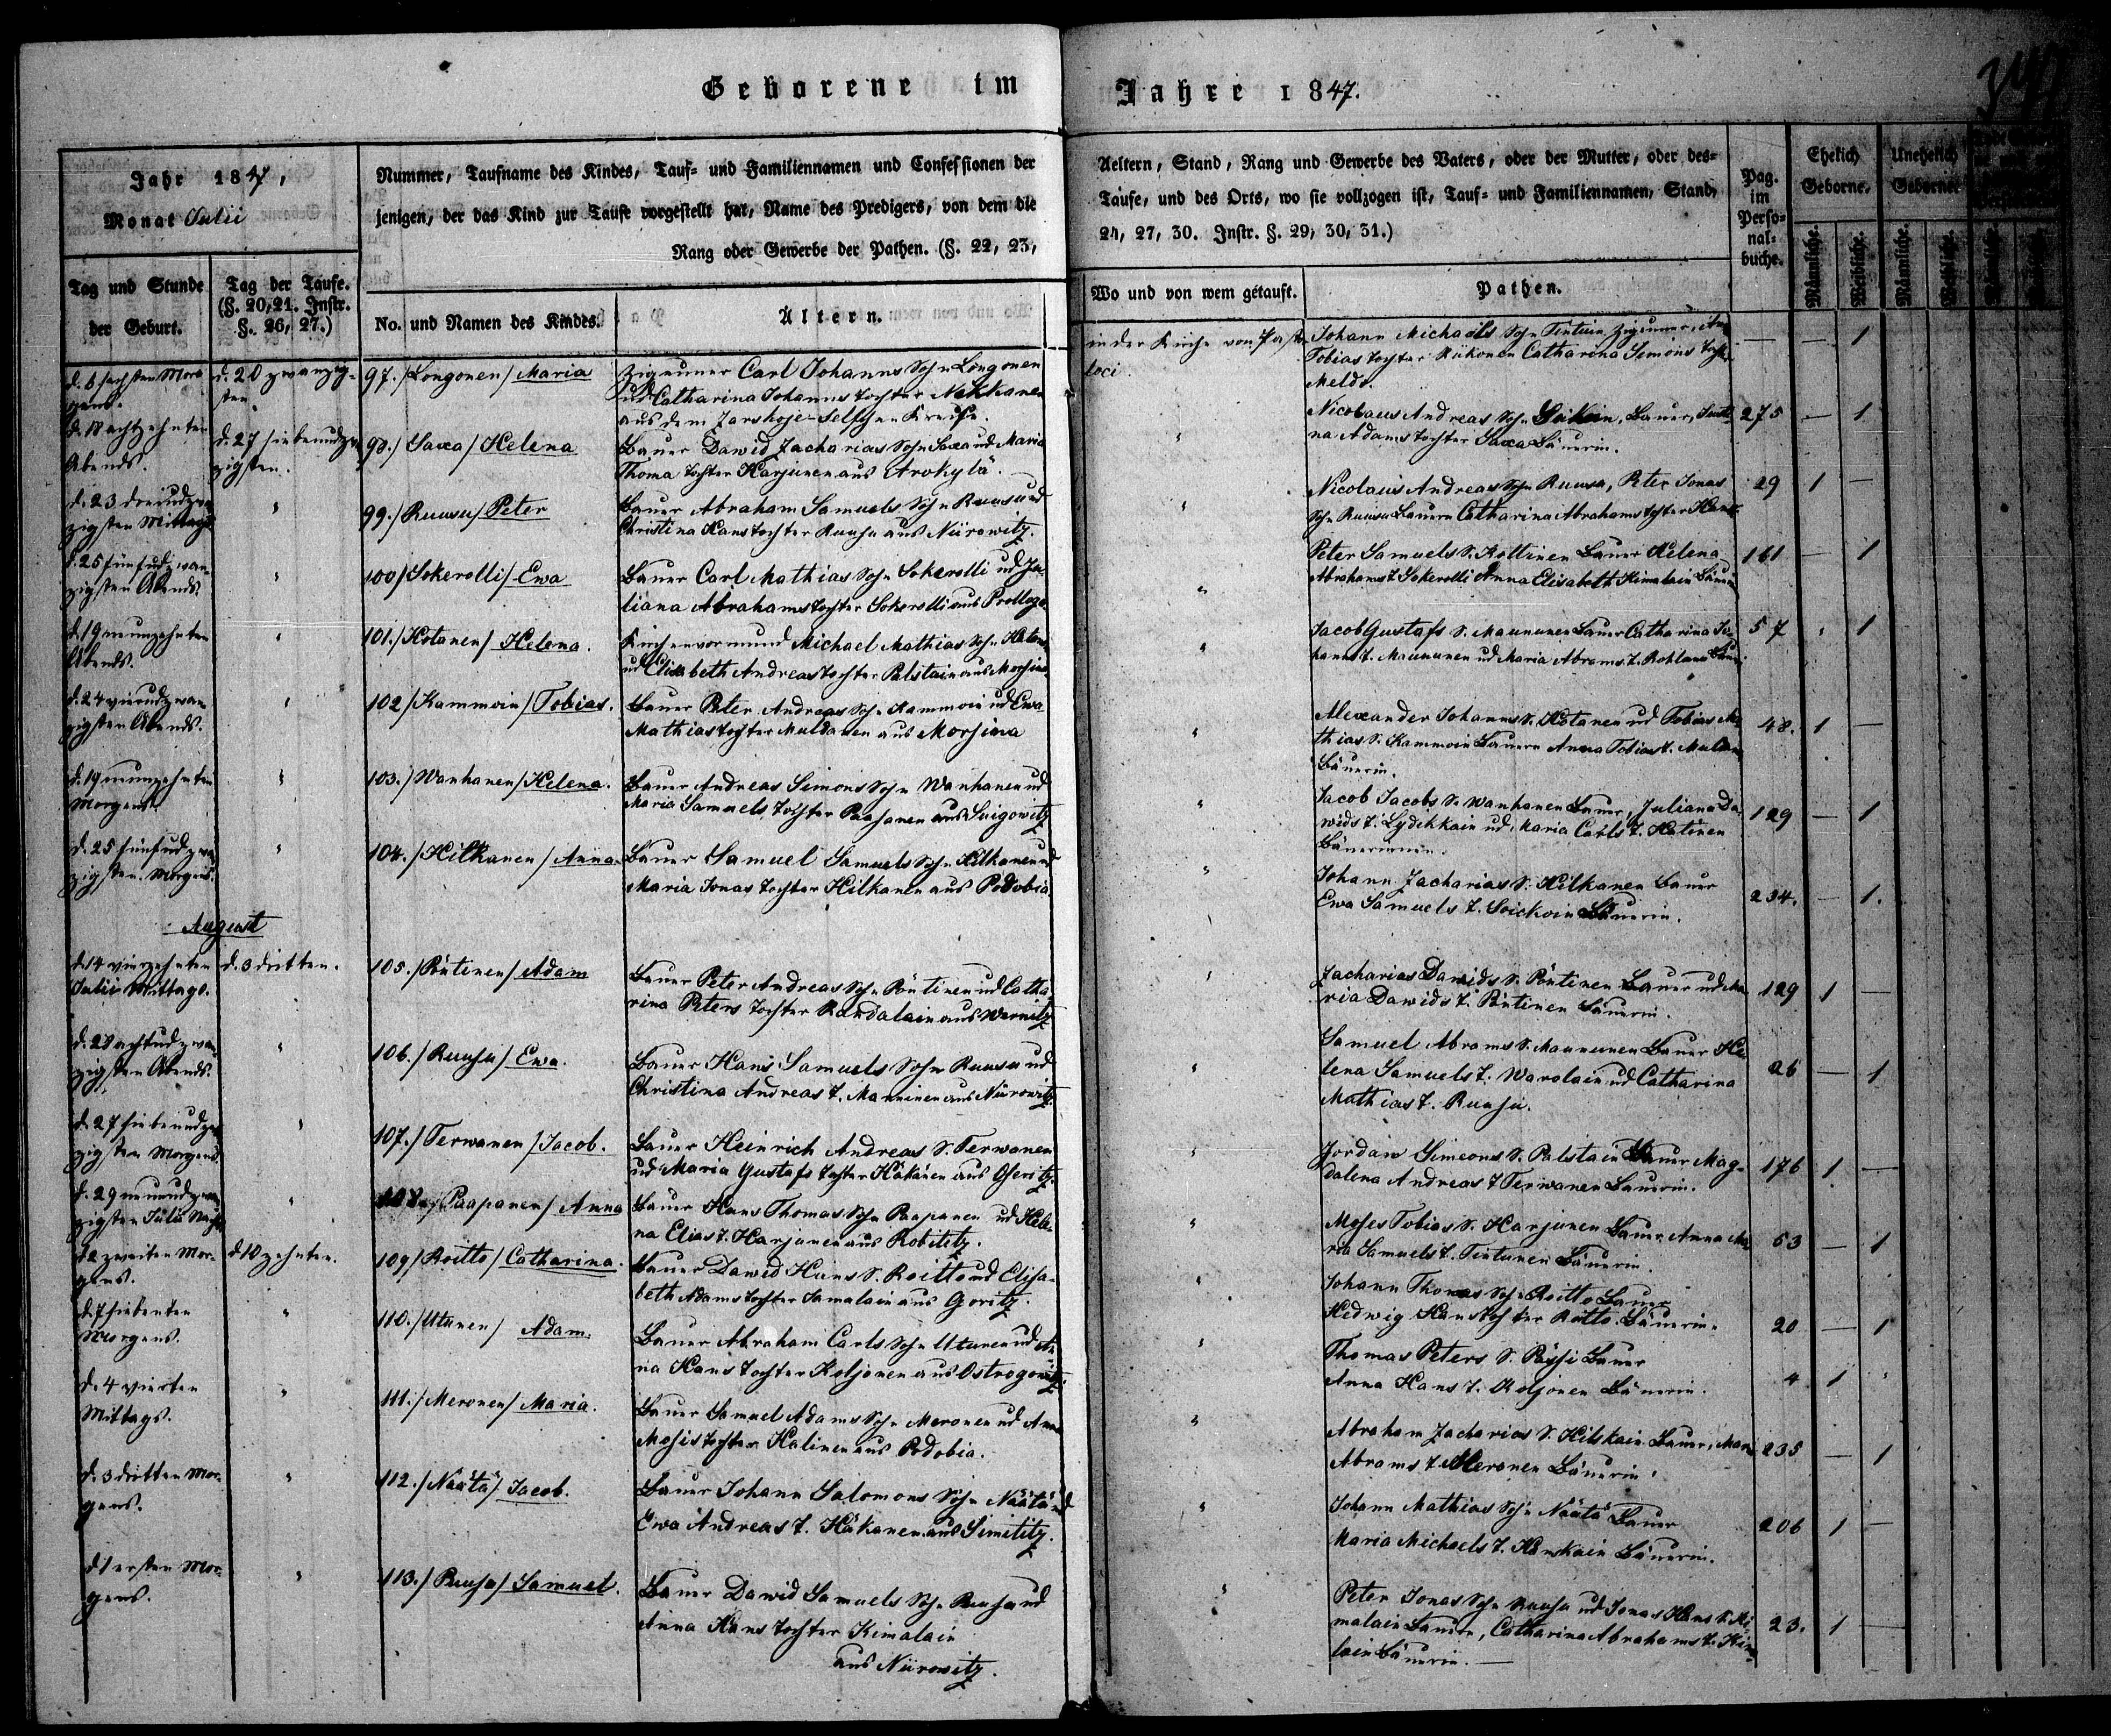 Geborene im Jahre 1847.
Jahr 1847,
Monat Julii
Nummer, Taufname des Kindes, Tauf- und Familiennamen und Confessionen der
jenigen, der das Kind zur Taufe vorgestellt hat, Name des Predigers, von dem die
Rang oder Gewerbe der Pathen. (§. 22, 23,
Aeltern, Stand, Rang und Gewerbe des Vaters, oder der Mutter, oder des-
Taufe, und des Orts, wo sie vollzogen ist, Tauf- und Familiennamen, Stand,
24, 27, 30. Instr. §. 29, 30, 31.)
Pag.
im
Perso-
nal-
buche.
Ehelich
Geborne.
Unehelich
Geborne.
Männliche.
Weibliche.
Männliche.
Weibliche.
Tag und Stunde
der Geburt.
Tag der Taufe.
(§. 20, 21. Instr.
§. 26, 27.)
No. und Namen des Kindes.
Ältern.
Wo und von wem getauft.
Pathen.
d. 6 sechsten Mor-
gens.
d. 20 zwanzig-
sten
97./ Longonen/ Maria
Zigeuner Carl Johanns Sohn Longonen
ud Catharina Johanns Tochter Nakkanen
aus dem Zarskoje-Selschen Kreise.
in der Kirche von Past.
loci.
Johann Michaels Sohn Zigeuner,
Tobias Tochter Rükonen Catharina Simons Tocht.
Meldo.
— — 1
d. 18 achtzehnten
Abends.
d. 27 siebenudzwan
zigsten.
98./ Saxa/ Helena
Bauer Dawid Zacharias Sohn Saxa ud Maria
Thoma Tochter Harjunen aus Arokylä.
Nicolaus Andreas Sohn Bauer,
na Adams Tochter Saxa Bäuerin.
275 — 1
d. 23 dreiudzwan
zigsten Mittags
"
99./ Ruusu/ Peter
Bauer Abraham Samuels Sohn Ruusu ud
Christina Hans Tochter Ruusu aus Nürowitz.
"
Nicolaus Andreas Sohn Ruusu, Peter Jonas
Sohn Ruusu Bauern Catharina Abrahams Tochter
29 1 —
d. 25 fünfudzwan
zigsten Abends.
"
100/ Sokerolli/ Ewa
Bauer Carl Mathias Sohn Sokerolli ud Ju-
liana Abrahams Tochter Sokerolli aus
"
Peter Samuels S. Kottinen Bauer Helena
Abrahams T. Sokerolli Anna Elisabeth Kimalain Bäuerin
161 — 1
d. 19 neunzehnten
Abends.
"
101./ Hotanen/ Helena.
Kirchenvormund Michael Mathias Sohn
ud Elisabeth Andreas Tochter Palstain aus Morsina
"
Jacob Gustafs S. Maununen Bauer Catharina Jo-
hanns T. Maununen ud Maria Abrams T.
57 " 1
d. 24 vierudzwan
zigsten Abends.
"
102/ Kammoin/ Tobias.
Bauer Peter Andreas Sohn Kammoin ud Ewa
Mathias Tochter Muldanen aus Morsina
"
Alexander Johanns S. Hotanen ud Tobias Ma-
thias S. Kammoin Bauern Anna Tobias T.
Bäuerin.
48. 1 —
d. 19 neunzehnten
Morgens.
"
103./ Wanhanen/ Helena.
Bauer Andreas Simons Sohn Wanhanen ud
Maria Samuels Tochter Paasanen aus Suigowitz
"
Jacob Jacobs S. Wanhanen Bauer, Juliana Da-
wids T. Lydikkain ud Maria Carls T. Hatinen
Bäuerinnen.
129 — 1
d. 25 fünfudzwan
zigsten Morgens.
"
104./ Hilkanen/ Anna
Bauer Samuel Samuels Sohn Hilkanen ud
Maria Jonas Tochter Hilkanen aus Podobia.
"
Johann Zacharias S. Hilkanen Bauer
Ewa Samuels T. Soickoin Bäuerin.
234. — 1.
August
d. 14 vierzehnten
Julii Mittags.
d. 3 dritten.
105./ Pöntinen/ Adam
Bauer Peter Andreas Sohn Pöntinen ud Catha
rina Peters Tochter Randalain aus Warnitz
"
Zacharias Dawids S. Pöntinen Bauer ud Ma
ria Dawids T. Pöntinen Bäuerin.
129 1 —
d. 28 achtudzwan
zigsten Abends.
"
106./ Ruusu/ Ewa.
Bauer Hans Samuels Sohn Ruusu ud
Christina Andreas T. Manninen aus Nürowitz.
"
Samuel Abrams S. Maununen Bauer He-
lena Samuels T. Warolain ud Catharina
Mathias T. Ruusu.
26 — 1
d. 27 siebenudzwan
zigsten Morgens.
"
107./ Terwanen/ Jacob.
Bauer Heinrich Andreas S. Terwanen
ud Maria Gustafs Tochter Häkänen aus Oseritz.
"
Jordan Simeons S. Palstain Bauer Mag-
dalena Andreas T Terwanen Bäuerin.
176 1 —
d. 29 neunudzwan
zigsten Julii Nachts
"
108./ Paapanen/ Anna
Bauer Hans Thomas Sohn Paapanen ud Hele-
na Elias T. Harjunen aus Robilitz.
"
Moses Tobias S. Harjunen Bauer Anna Ma
ria Samuels T. Tintunen Bäuerin.
63 — 1
d. 2 zweiten Mor-
gens.
d 10 zehnten.
109/ Roitto/ Catharina.
Bauer Dawid Hans S. Roitto ud Elisa-
beth Adams Tochter Samalain aus Goritz.
"
Johann Thomas Sohn Roitto Bauer
Hedwig Hans Tochter Roitto Bäuerin.
20 — 1
d. 7 siebenten
Morgens.
"
110./ Utunen/ Adam.
Bauer Abraham Carls Sohn Utunen ud An
na Hans Tochter Koljonen aus Ostrogowitz.
"
Thomas Peters S. Pässi Bauer
Anna Hans T. Koljonen Bäuerin.
4 1 "
d. 4 vierten
Mittags.
"
111./ Meronen/ Maria.
Bauer Samuel Adams Sohn Meronen ud Anna
Mosis Tochter Halinen aus Podobia.
"
Abraham Zacharias S. Hilskain Bauer, Maria
Abrams T. Meronen Bäuerin.
235 — 1
d. 3 dritten Mor-
gens.
"
112./ Näätä/ Jacob.
Bauer Johann Salomons Sohn Näätä ud
Ewa Andreas T. Häkänen aus Similitz.
"
Johann Mathias Sohn Näätä Bauer
Maria Michaels T. Hanskain Bäuerin.
206 1 —
d. 1 ersten Mor-
gens.
"
113./ Ruusu/ Samuel.
Bauer Dawid Samuels Sohn Ruusu ud
Anna Hans Tochter Kimalain
aus Nürowitz.
"
Peter Jonas Sohn Ruusu ud Jonas Hans S. Ki-
malain Bauern, Catharina Abrahams T. Kima-
lain Bäuerin. —
23. 1 —